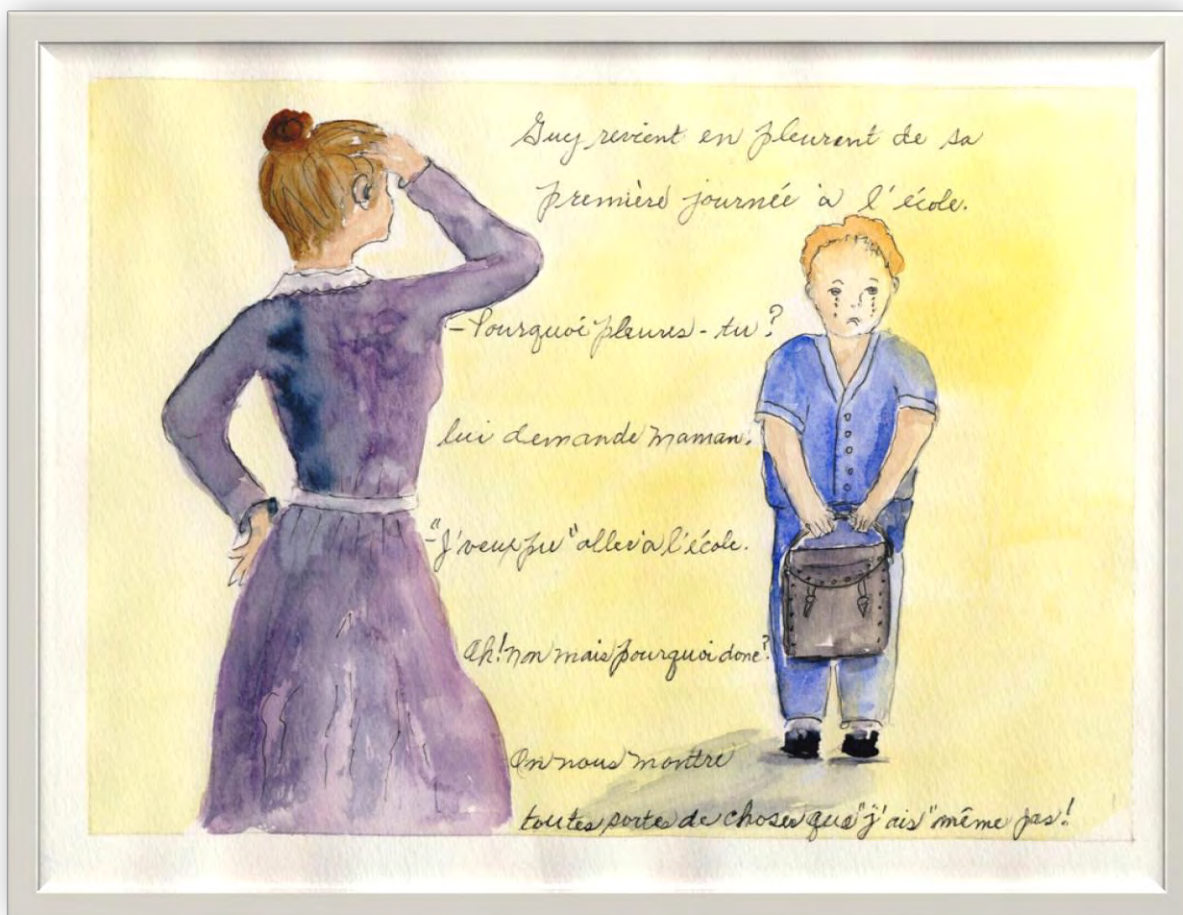 Guy revient en pleurent de sa
première journée à l'école.
-Pourquoi pleures-tu?
lui demande maman.
-"J'veux pu" aller à l'école.
Ah! non mais pourquoi donc?
On nous montre
toutes sortes de choses que "j'ais" même pas!